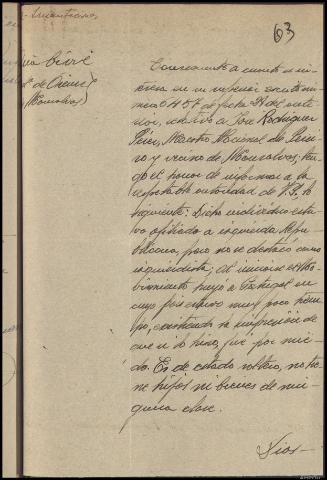 63
Guardia Civil
de Orense
(Monsalvos)
Consecuente a cuanto
interesa en su superior escrito nú-
mero 6457 de fecha 24 del ante-
rior, relativo a Jose Rodriguez
Perez, Maestro Nacional de
y vecino de Monsalvos; ten-
go el honor de informar a la
respetable autoridad de V.S. lo
siguiente: Dicho individuo estu-
vo afiliado a izquierda Repu-
blicana, pero no se destacó como
izquierdista, al iniciarse el Mo-
vimiento huyó a Portugal en
cuyo pais estuvo muy poco tiem-
po, causando la impresión de
que si lo hizo, fue por mie-
do. Es de estado soltero, no tie-
ne hijos ni bienes de nin-
guna clase.
Dios